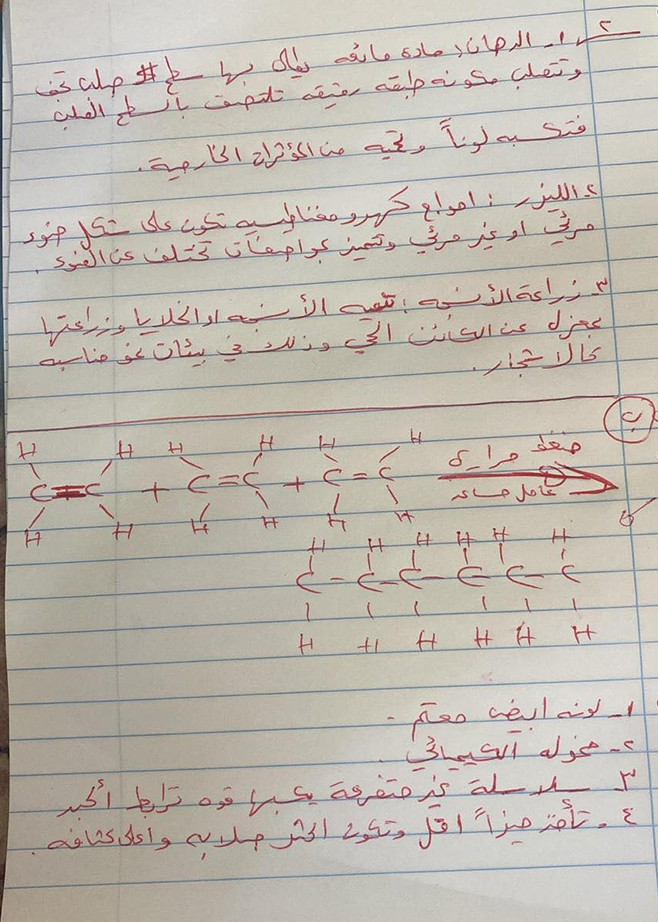 س٢ ١- الدهان: مادة مائعه يطلى بها سطح صلب تجف
وتتصلب مكونه طبقه رقيقه تلتصق بالسطح الصلب
فتكسبه لوناً وتحميه من المؤثرات الخارجية.
٢- الليزر: امواج كهرومغناطيسيه تكون على شكل ضوء
مرئي او غير مرئي وتتميز بمواصفات تختلف عن الضوء.
٣- زراعة الأنسجه: تنميه الأنسجه او الخلايا وزراعتها
بمعزل عن الكائن الحي وذلك في بيئات نمو مناسبه
كالاشجار.
ب
ضغط حرارة
عامل مساعد
H H H H H H
C=C + C=C + C=C
H H H H H H
H H H H H H
C - C - C - C - C - C
H H H H H H
١- لونه ابيض معتم.
٢- خموله الكيميائي.
٣- سلاسلة غير متفرعة يكسبها قوه ترابط أكبر
٤- تأخذ حيزاً اقل وتكون اكثر صلابه واعلى كثافه.